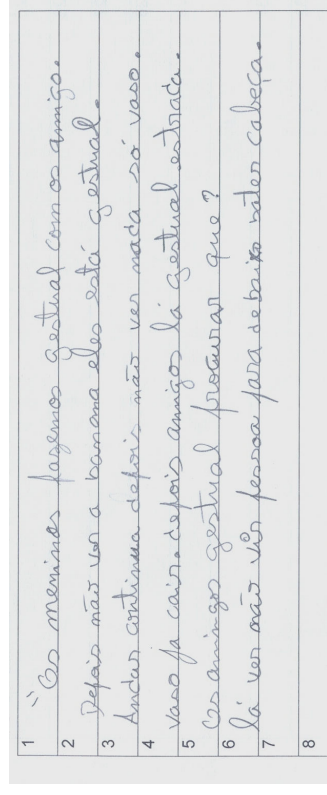 1 " Os meninos fazemos gestual com os amigo.
2 Depois não ver a banana eles está gestual.
3 Andar continua depois não ver nada só vaso.
4 vaso ja cair. depois amigos lá gestual estrada.
5 Os amingos gestual procurar que?
6 lá ver não vir pessoa para debaixo bater cabeça.
7
8